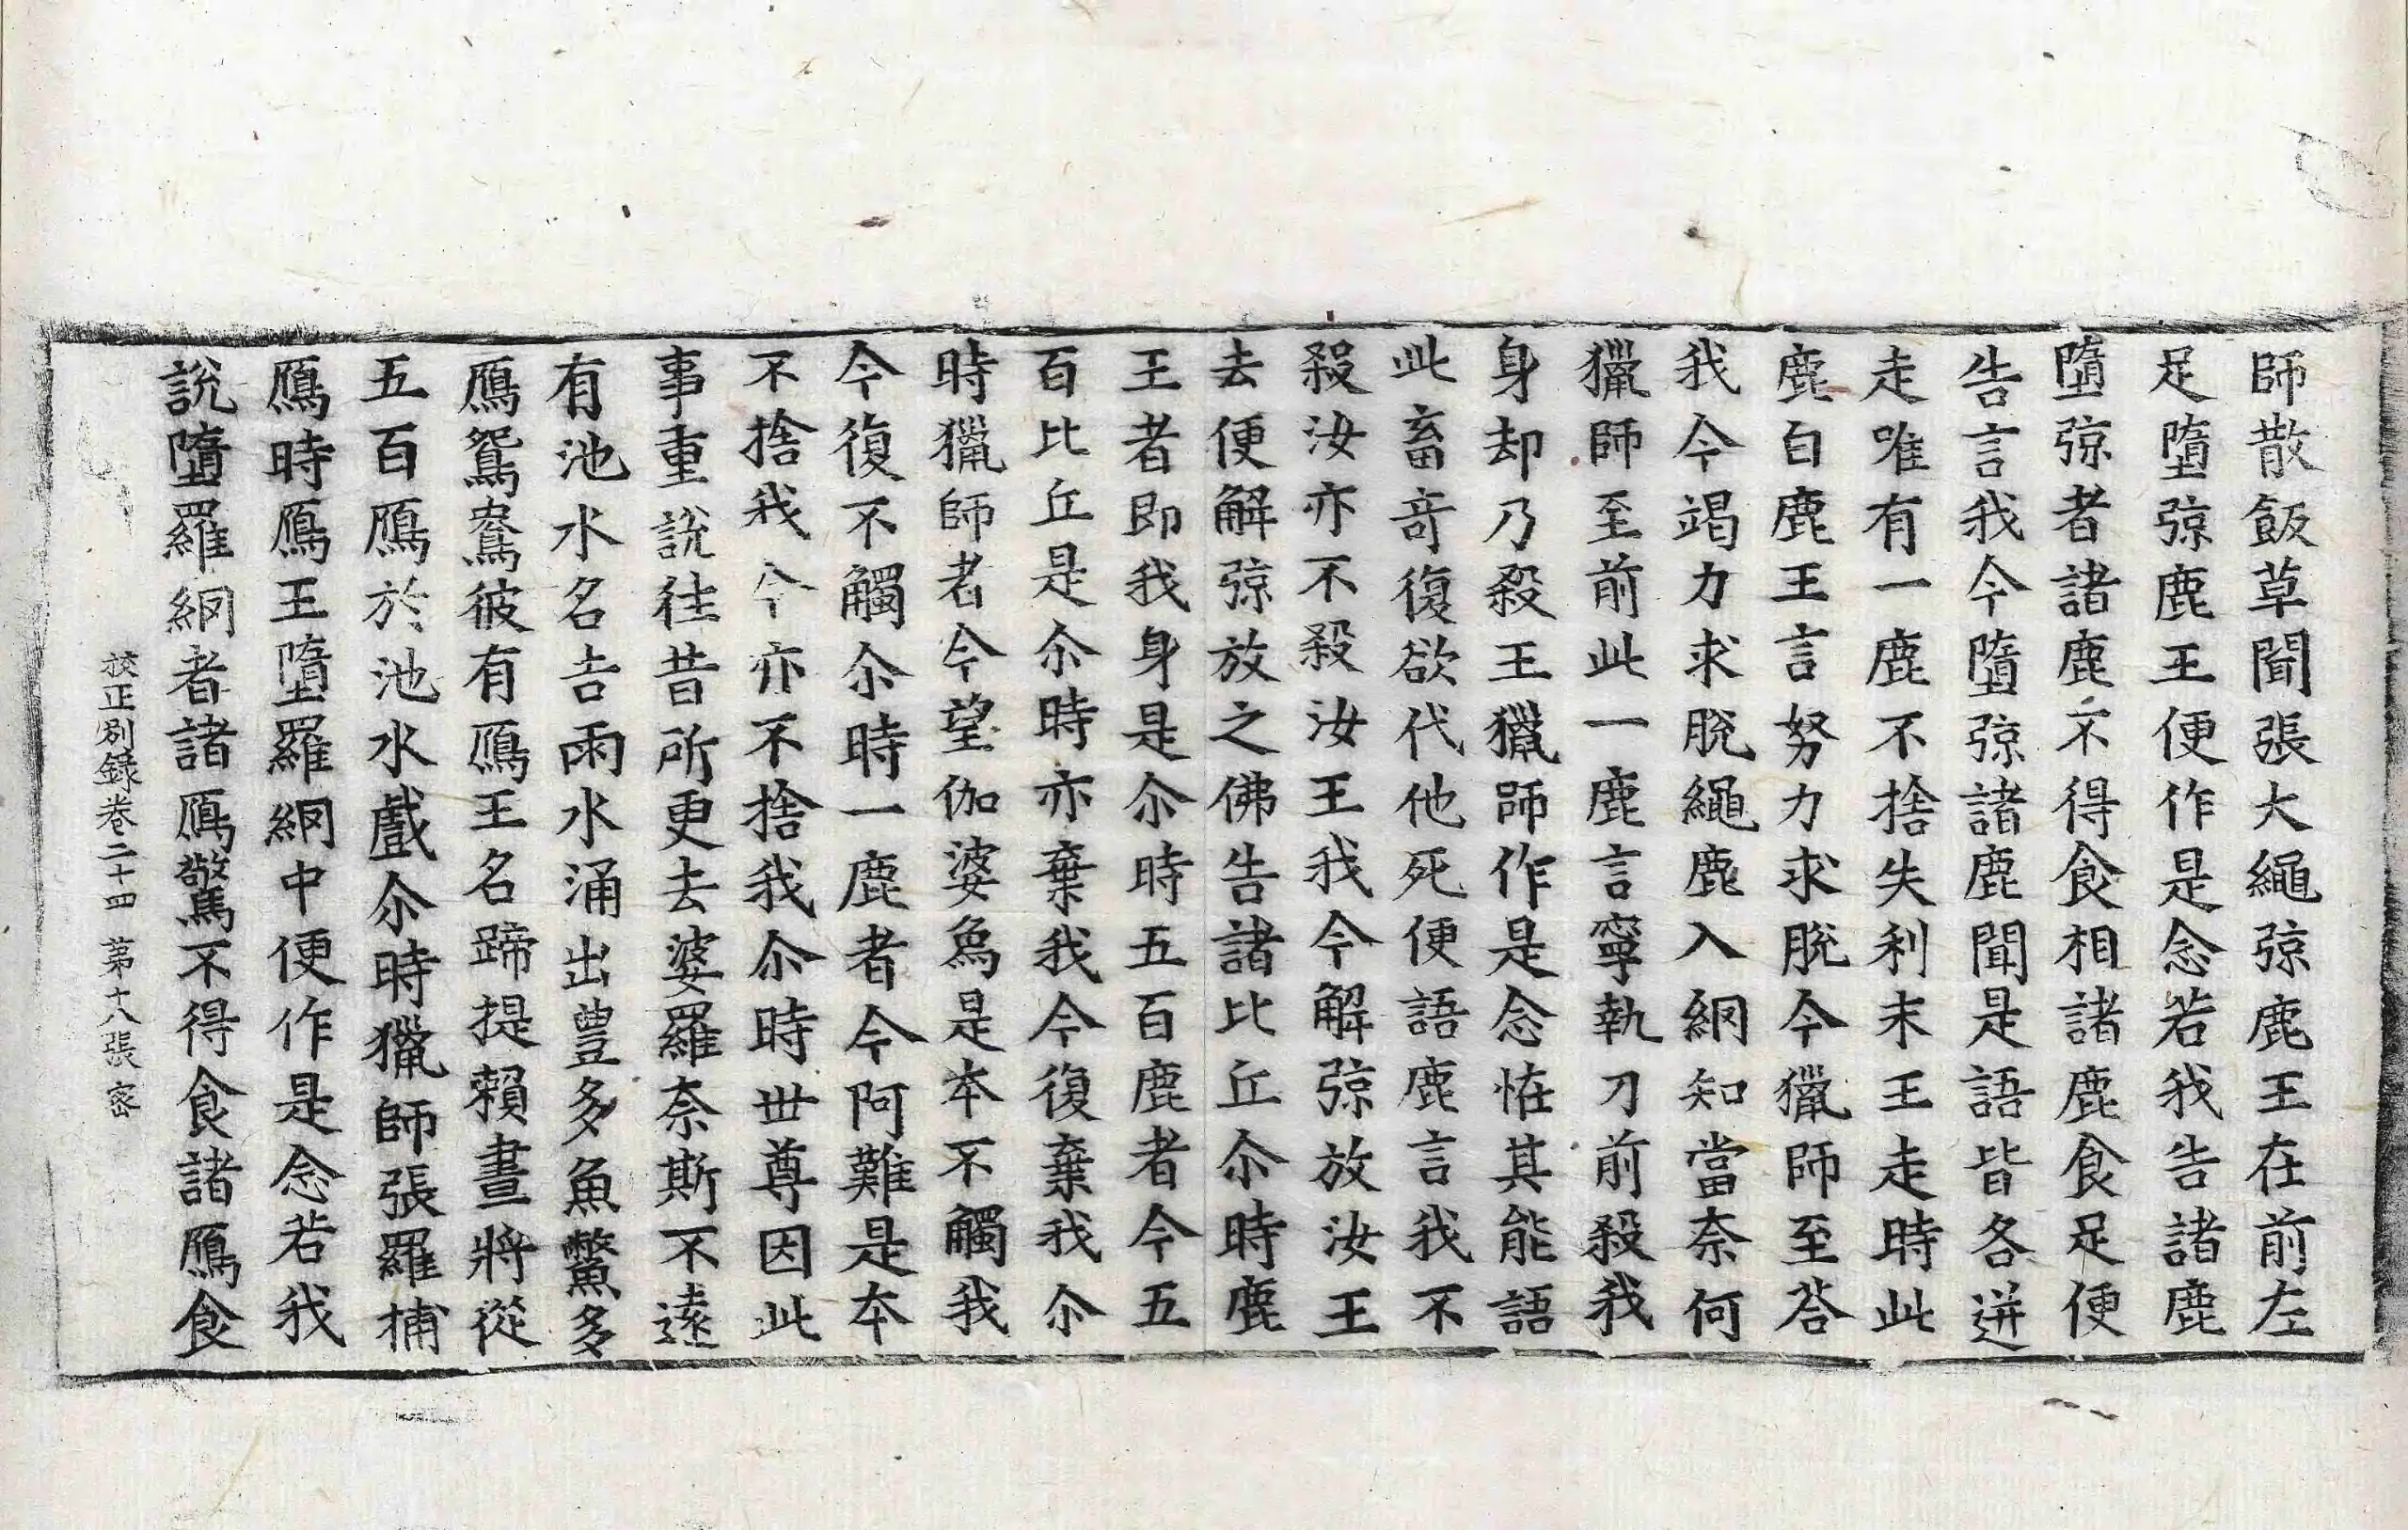 師散飯草聞張大繩弶鹿王在前左
足墮弶鹿王便作是念若我告諸鹿
墮弶者諸鹿不得食相諸鹿食足便
告言我今墮弶諸鹿聞是語皆各迸
走唯有一鹿不捨失利末王走時此
鹿白鹿王言努力求脫今獵師至荅
我今竭力求脫繩鹿入網知當奈何
獵師至前此一鹿言寧執刀前殺我
身却乃殺王獵師作是念恠其能語
此畜竒復欲代他死便語鹿言我不
殺汝亦不殺汝王我今解弶放汝王
去便解弶放之佛告諸比丘尒時鹿
王者即我身是尒時五百鹿者今五
百比丘是尒時亦棄我今復棄我尒
時獵師者今望伽婆爲是本不觸我
今復不觸尒時一鹿者今阿難是本
不捨我今亦不捨我尒時世尊因此
事重說往昔所更去婆羅奈斯不遠
有池水名吉雨水涌出豊多魚鱉多
鴈鴛鴦彼有鴈王名蹄提賴晝將從
五百鴈於池水戲尒時獵師張羅捕
鴈時鴈王墮羅網中便作是念若我
說墮羅網者諸鴈驚不得食諸鴈食
校正別錄卷二十四 第十八張 密